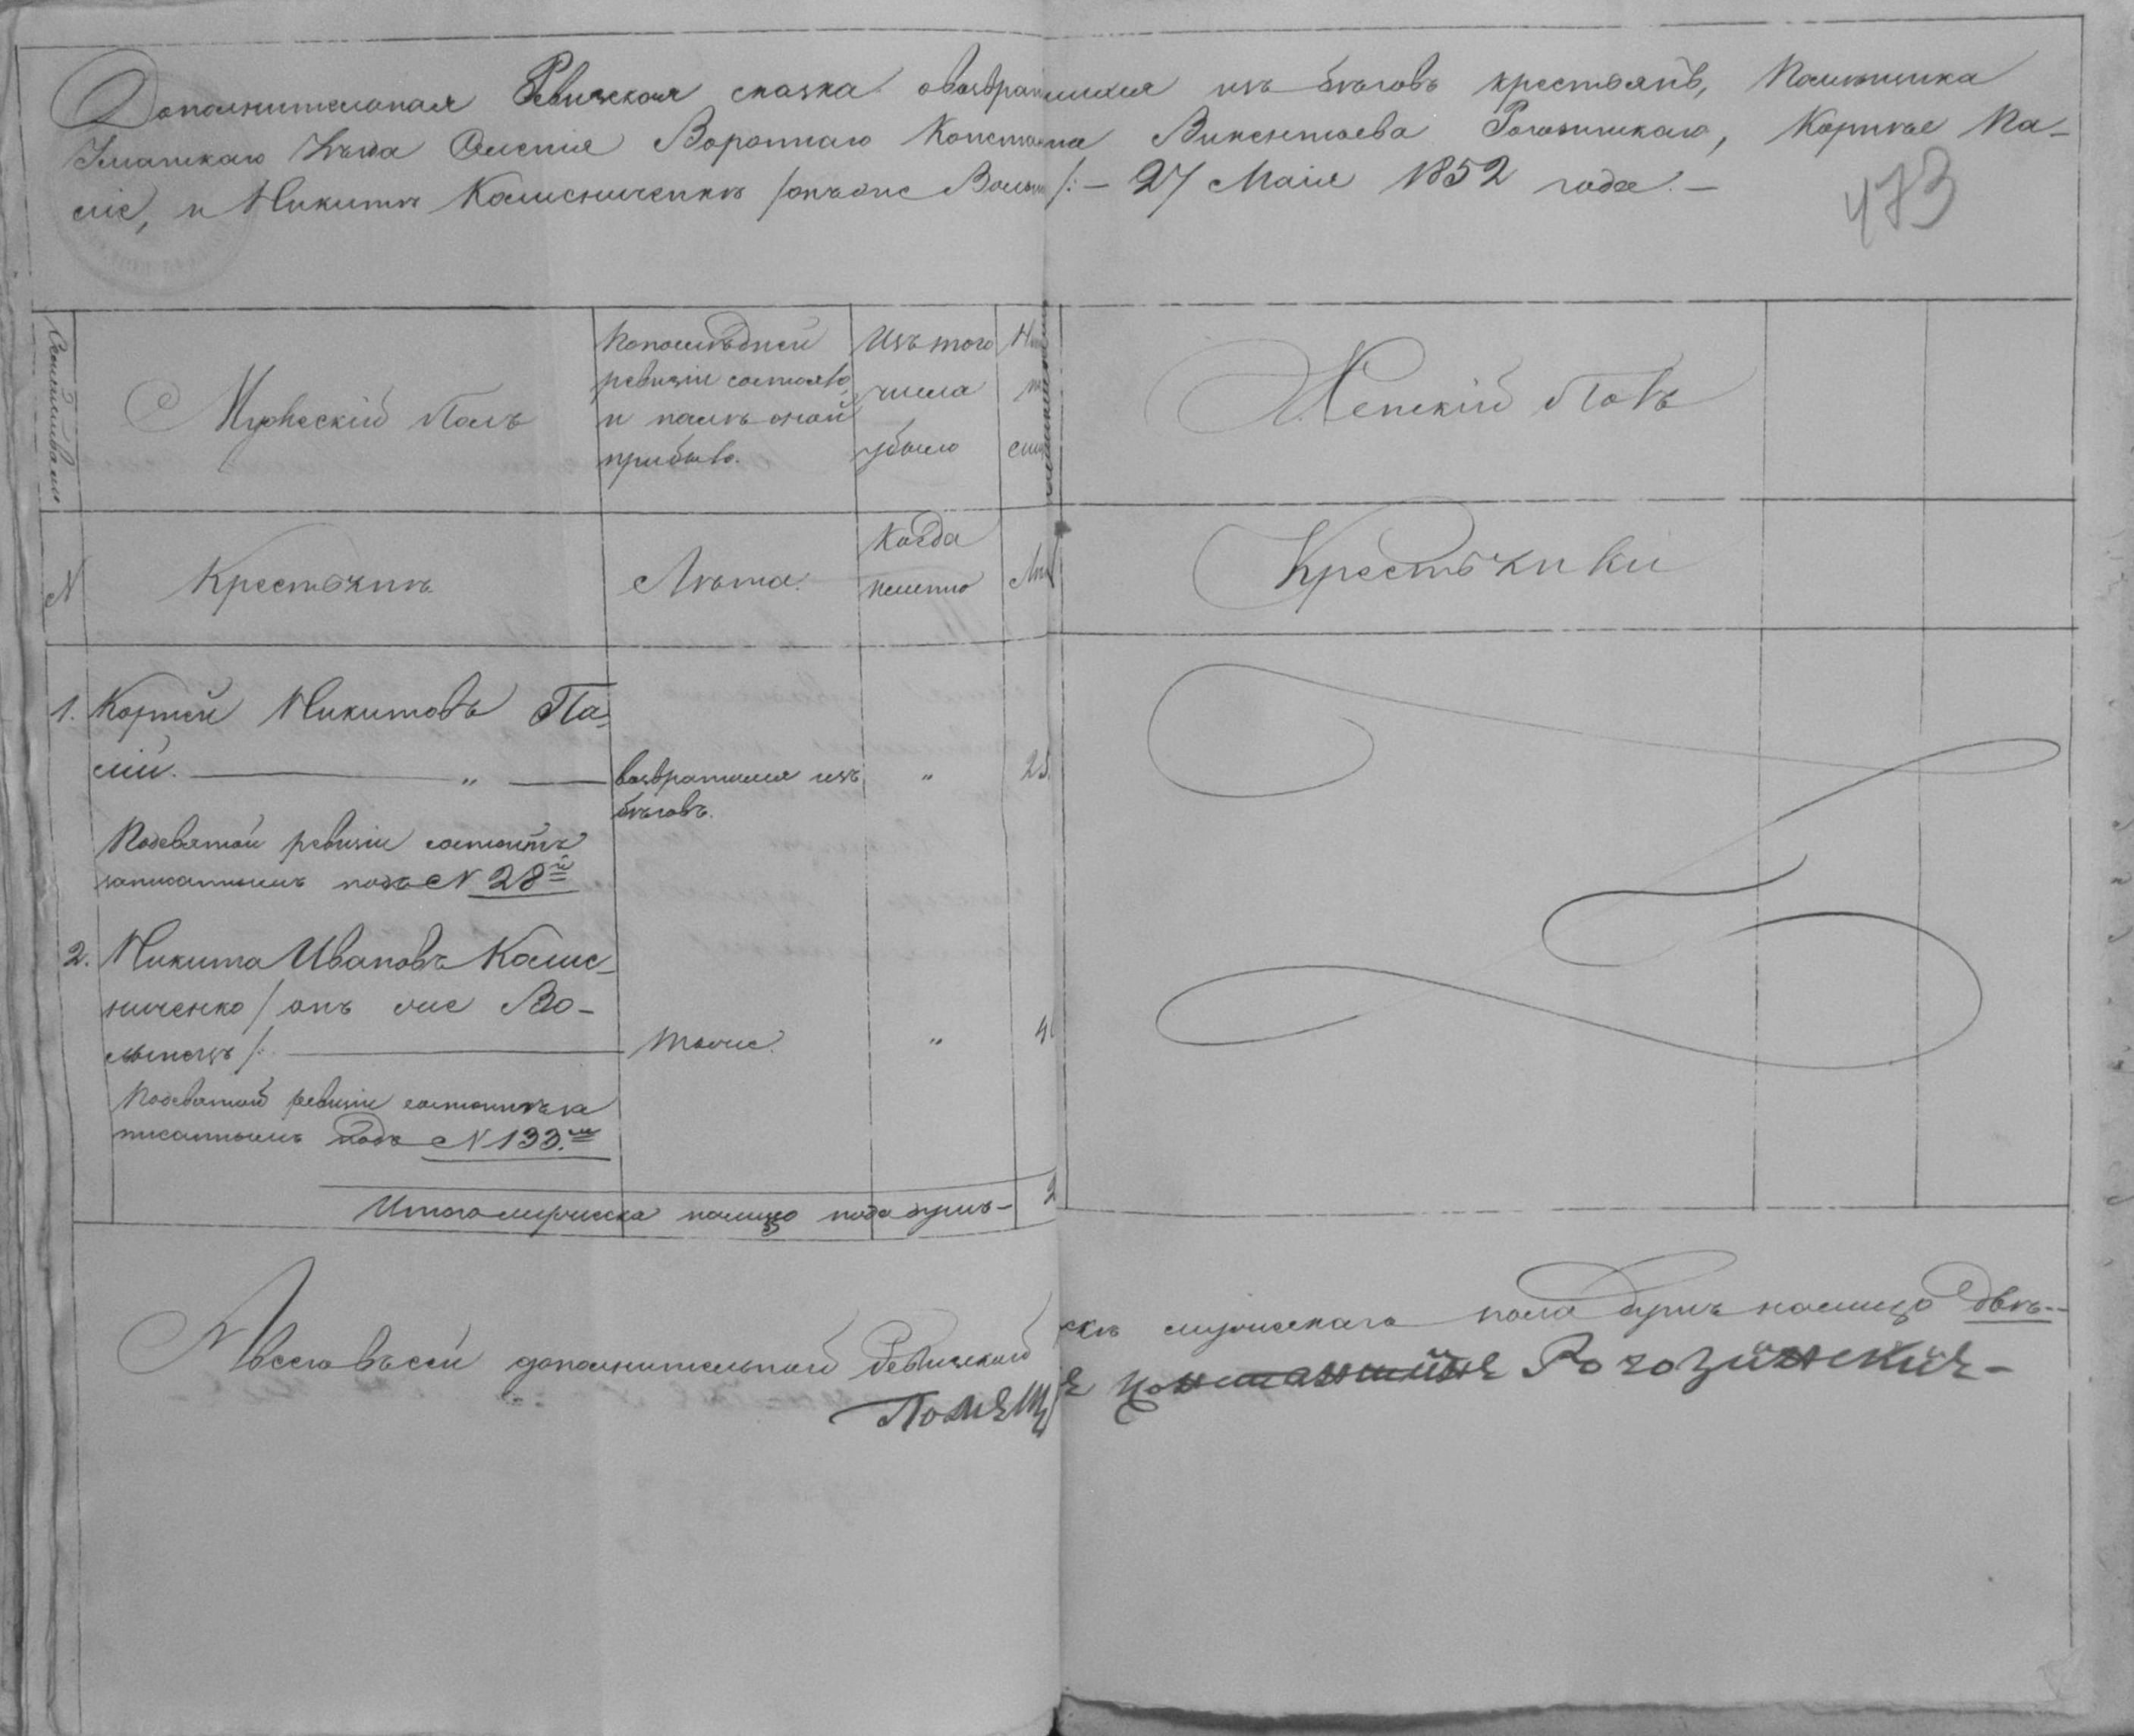 Дополнительная Ревизская сказка о возвратившихся изъ бѣговъ крестьянъ, Помѣщика
Уманскаго Уѣзда Селенія Вороннаго Константина Викентьева Рогозинскаго, Корнѣе Па-
ліе, и Никитѣ Колисниченкѣ /онъ же /:- 27 Маія 1852 года.-
473
Мужескій Полъ
По послѣдней
ревизіи состояло,
и послѣ оной
прибыло.
Изъ того
числа
убыло
Женскій Полъ
N
Крестьянъ
Лѣта.
Когда
именно
Крестьянки
1. Корней Никитовъ Па-
лій. — " — возвратился изъ " 25
бѣговъ.
По девятой ревизіи состоитъ
записаннымъ подъ N 28й
2. Никита Ивановъ Колис-
ниченко / онъ же Во-
лынецъ /: — тоже. "
По девятой ревизіи состоитъ за
писаннымъ подъ N 133.м
Итого мужеска налицо пола душъ - 2
А всего въ сей дополнительной Ревизской сказкѣ мужескаго пола душъ налицо двѣ--
Помещ Константинъ Рогозинский-